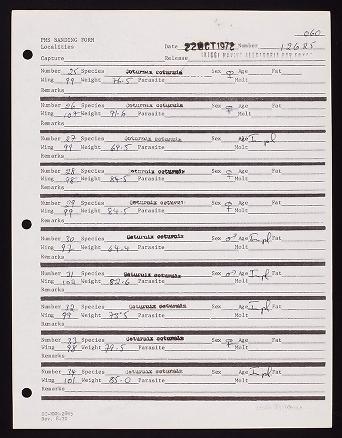 060
PMS BANDING FORM
Localities Date 22 OCT 1972 Number 12685
Capture Release
Number 25 Species Coturnix coturnix Sex ♀ Age Fat
Wing 99 Weight 76.5 Parasite Molt
Remarks
Number 26 Species Coturnix coturnix Sex ♀ Age Fat
Wing 107 Weight 91.6 Parasite Molt
Remarks
Number 27 Species Coturnix coturnix Sex Age I pl Fat
Wing 99 Weight 69.5 Parasite Molt
Remarks
Number 28 Species Coturnix coturnix Sex ♀ Age Fat
Wing 98 Weight 84.5 Parasite Molt
Remarks
Number 29 Species Coturnix coturnix Sex ♀ Age Fat
Wing 99 Weight 84.5 Parasite Molt
Remarks
Number 30 Species Coturnix coturnix Sex ♂ Age I pl Fat
Wing 97 Weight 64.4 Parasite Molt
Remarks
Number 31 Species Coturnix coturnix Sex ♂ Age I pl Fat
Wing 102 Weight 82.6 Parasite Molt
Remarks
Number 32 Species Coturnix coturnix Sex Age I pl Fat
Wing 99 Weight 73.5 Parasite Molt
Remarks
Number 33 Species Coturnix coturnix Sex ♀ Age Fat
Wing 98 Weight 79.5 Parasite Molt
Remarks
Number 34 Species Coturnix coturnix Sex Age I pl Fat
Wing 101 Weight 85.0 Parasite Molt
Remarks